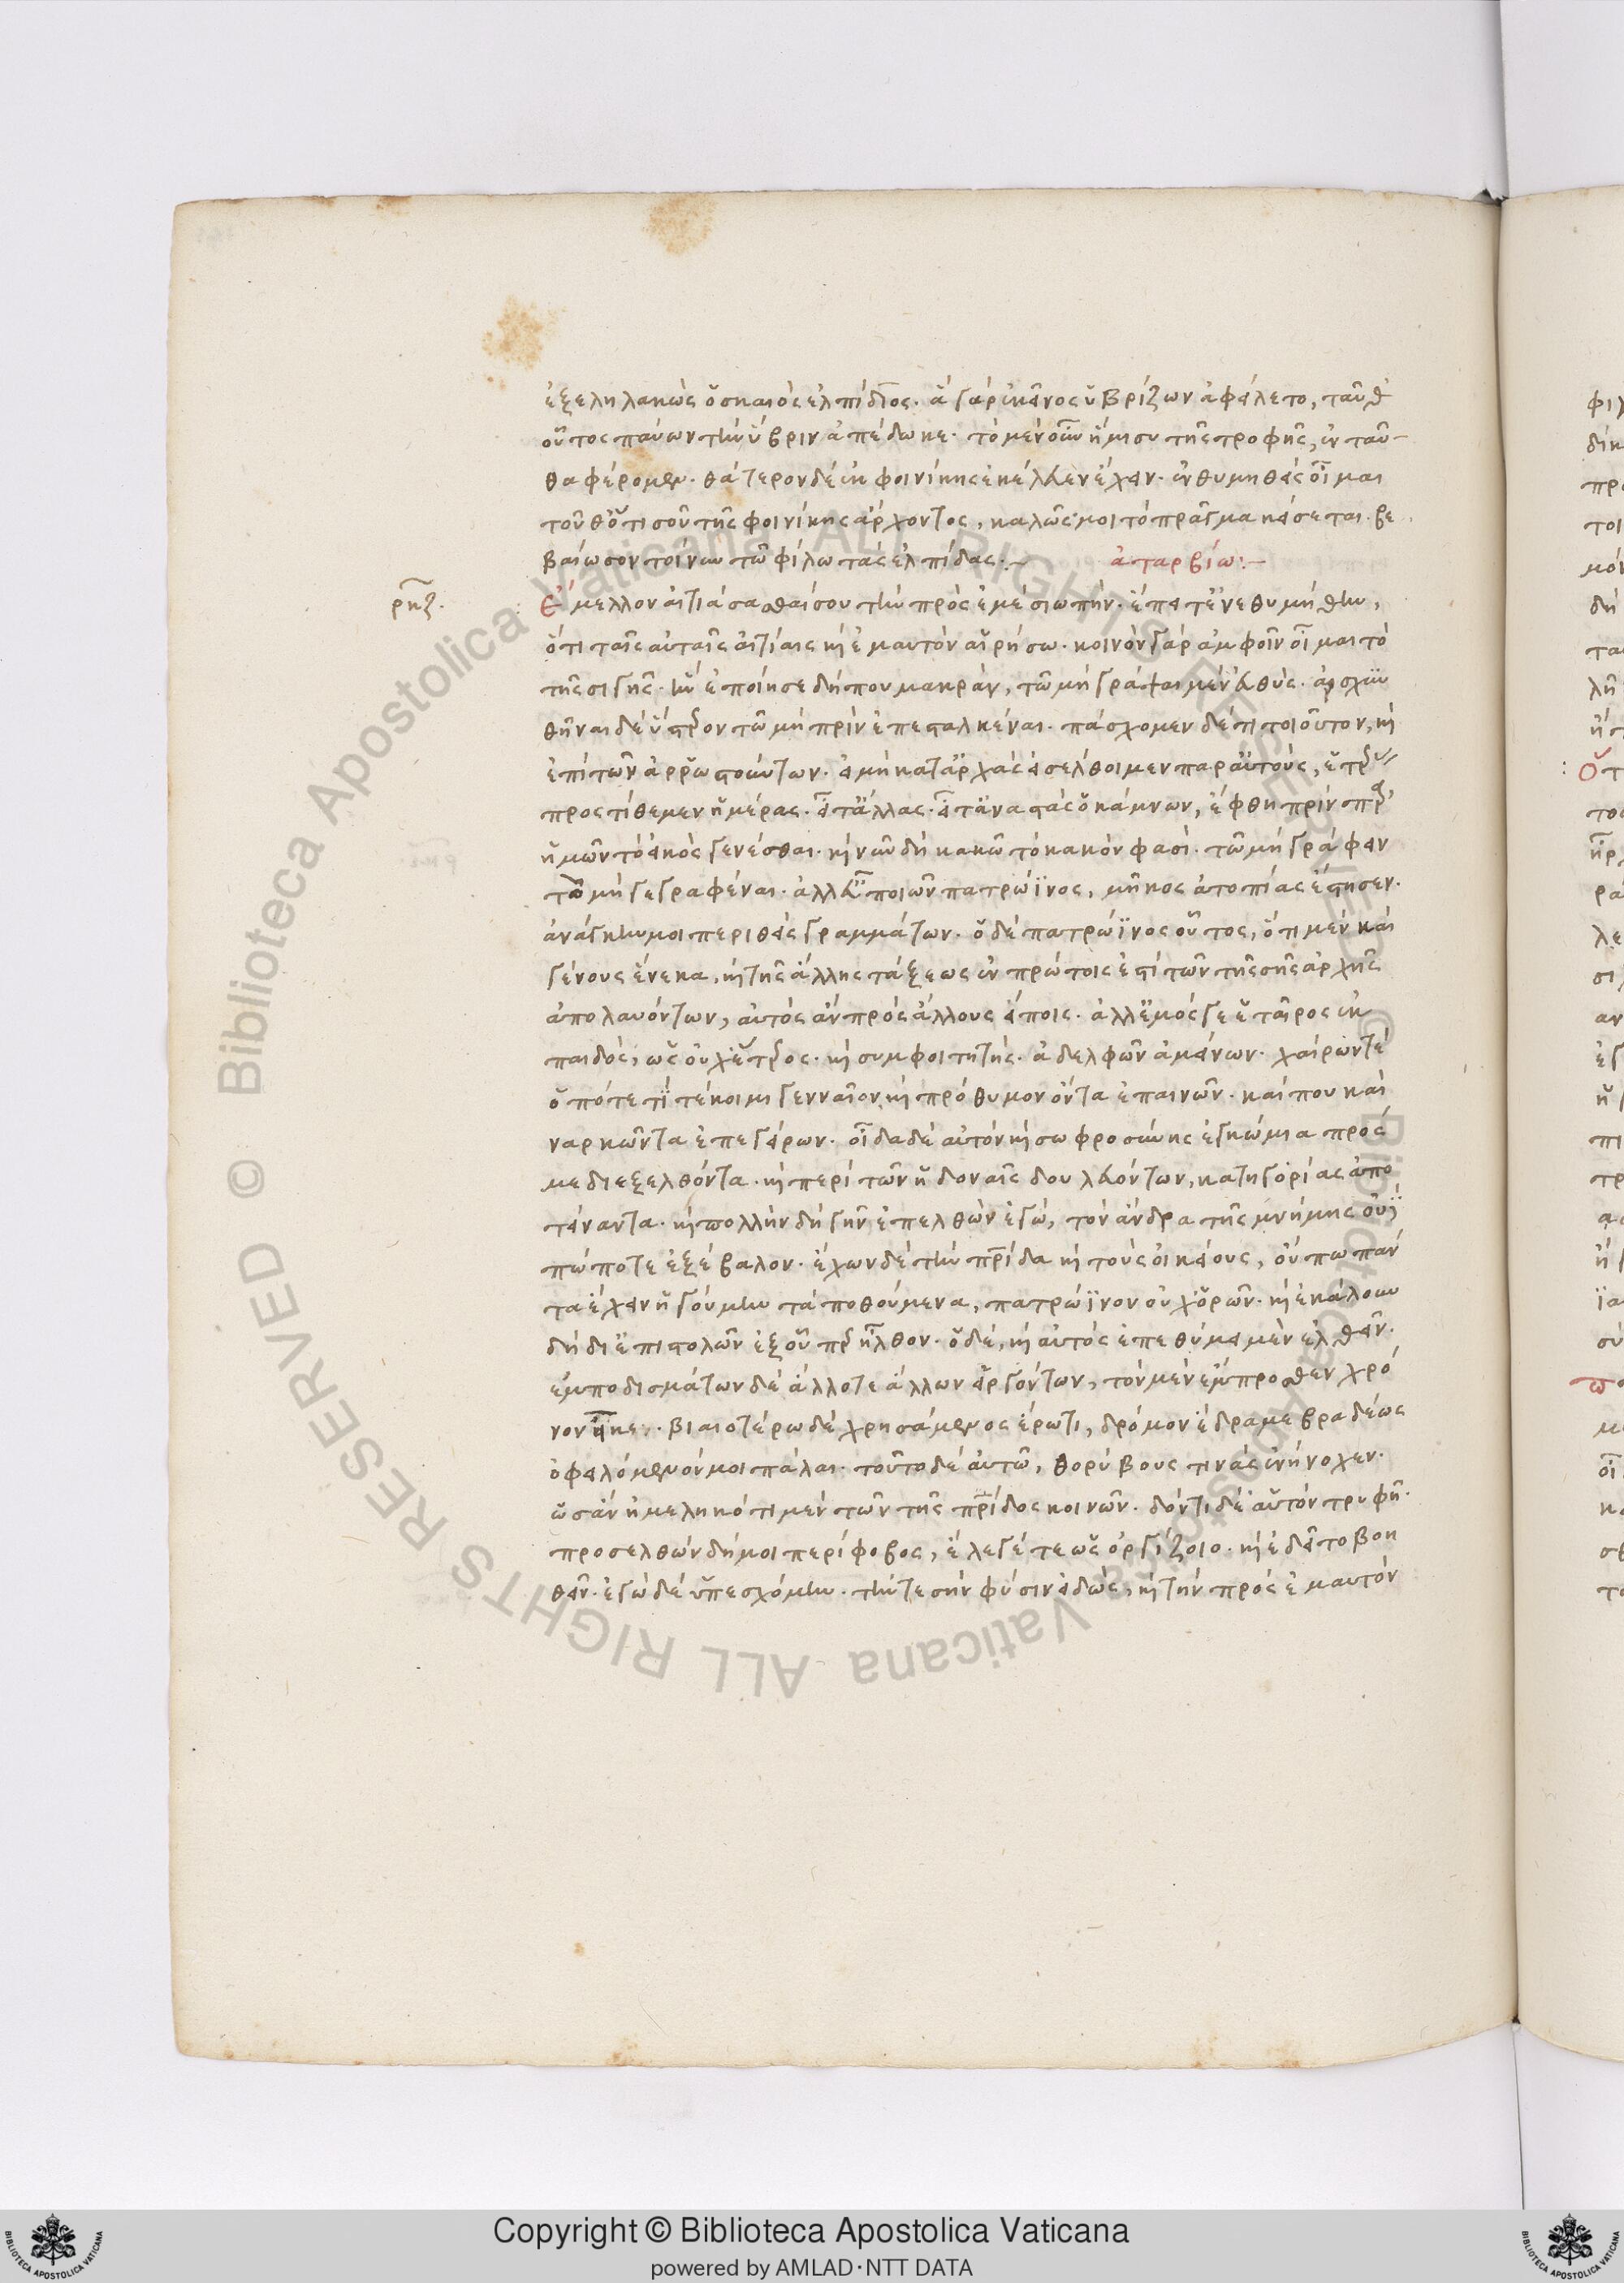 ἐξεληλακὼς ὁ σκαιὸς ἐλπίδιος. ἃ γὰρ ἐκεῖνος ὑβρίζων ἀφείλετο, ταῦθ
οὗτος παύων τὴν ὕβριν ἀπέδωκε. τὸ μὲν οὖν ἥμισυ τῆς τροφῆς, ἐνταῦ-
θα φέρομεν. θάτερον δὲ ἐκ φοινίκης ἐκέλευεν ἔχειν. ἐνθυμηθεὶς οἶμαι
τοῦθ ὅτι σοῦ τῆς φοινίκης ἄρχοντος, καλῶς μοι τὸ πρᾶγμα κείσεται. βε
βαίωσον τοίνυν τῷ φίλῳ τὰς ἐλπίδας:~ ἀταρβίω:~
ρκζ.
Ἔμελλον αἰτιάσασθαί σου τὴν πρὸς ἐμὲ σιωπήν. ἔπειτ ἐνεθυμήθην,
ὅτι ταῖς αὐταῖς αἰτίαις κὶ ἐμαυτὸν αἱρήσω. κοινὸν γὰρ ἀμφοῖν οἶμαι τὸ
τῆς σιγῆς. ἣν ἐποίησε δήπου μακρὰν, τῶ μὴ γράψαι μὲν εὐθύς. αἰσχυν
θῆναι δὲ ὕστερον τῶ μὴ πρὶν ἐπεσταλκέναι. πάσχομεν δέ τι τοιοῦτον, κὶ
ἐπὶ τῶν ἀρρωστούντων. εἰ μὴ κατ ἀρχὰς εἰσέλθοιμεν παρ αὐτοὺς, ἑτέρας
προστίθεμεν ἡμέρας. εἶτ ἄλλας. εἶτ ἀναστὰς ὁ κάμνων, ἔφθη πρὶν παρ
ἡμῶν τὸ εἰκὸς γενέσθαι. κὶ νῦν δὴ κακῶ τὸ κακὸν φασὶ. τῶ μὴ γράφειν
τὸ μὴ γεγραφέναι. ἀλλ εὖ ποιῶν πατρώϊνος, μῆκος ἀτοπίας ἔστησεν.
ἀνάγκην μοι περιθεὶς γραμμάτων. ὁ δὲ πατρώϊνος οὗτος, ὅτι μὲν καὶ
γένους ἕνεκα, κὶ τῆς ἄλλης τάξεως ἐν πρώτοις ἐστὶ τῶν τῆς σῆς ἀρχῆς
ἀπολαυόντων, αὐτὸς ἂν πρὸς ἄλλους εἴποις. ἀλλ ἐμός γε ἑταῖρος ἐκ
παιδὸς, ὡς οὐχ ἕτερος. κὶ συμφοιτητής. ἀδελφῶν ἀμείνων. χαίρων τέ
ὁπότε τι τέκοιμι γενναῖον, κὶ πρόθυμον ὄντα ἐπαινῶν. καί που καὶ
ναρκῶντα ἐπεγείρων. οἶδα δὲ αὐτὸν κὶ σωφροσύνης ἐγκώμια πρός
με διεξελθόντα. κὶ περὶ τῶν ἡδοναῖς δουλευόντων, κατηγορίας ἀπο
τείναντα. κὶ πολλὴν δὴ γῆν ἐπελθὼν ἐγώ, τὸν ἄνδρα τῆς μνήμης οὐ
πώποτε ἐξέβαλον. ἔχων δὲ τὴν πρίδα κὶ τοὺς οἰκείους, οὔπω πάν
τα ἔχειν ἡγούμην τὰ ποθούμενα, πατρώϊνον οὐχ ὁρῶν. κὶ ἐκάλουν
δὴ δι ἐπιστολῶν ἐξ οὗπερ ἦλθον. ὁ δὲ, κὶ αὐτὸς ἐπεθύμει μὲν ἐλθεῖν.
ἐμποδισμάτων δὲ ἄλλοτε ἄλλων εἰργόντων, τὸν μὲν ἔμπροσθεν χρό
νον . βιαιοτέρω δὲ χρησάμενος ἔρωτι, δρόμον ἔδραμε βραδέως
ὀφειλόμενόν μοι πάλαι. τοῦτο δὲ αὐτῶ, θορύβους τινὰς ἐνήνοχεν.
ὡς ἂν ἠμεληκότι μὲν τῶν τῆς πρίδος κοινῶν. δόντι δὲ αὑτὸν τρυφῆ.
προσελθὼν δή μοι περίφοβος, ἔλεγέ τε ὡς ὀργίζοιο. κὶ ἐδεῖτο βοη
θεῖν. ἐγὼ δὲ ὑπεσχόμην. τήν τε σὴν φύσιν εἰδὼς, κὶ τὴν πρὸς ἐμαυτὸν
Copyright © Biblioteca Apostolica Vaticana
powered by AMLAD·NTT DATA